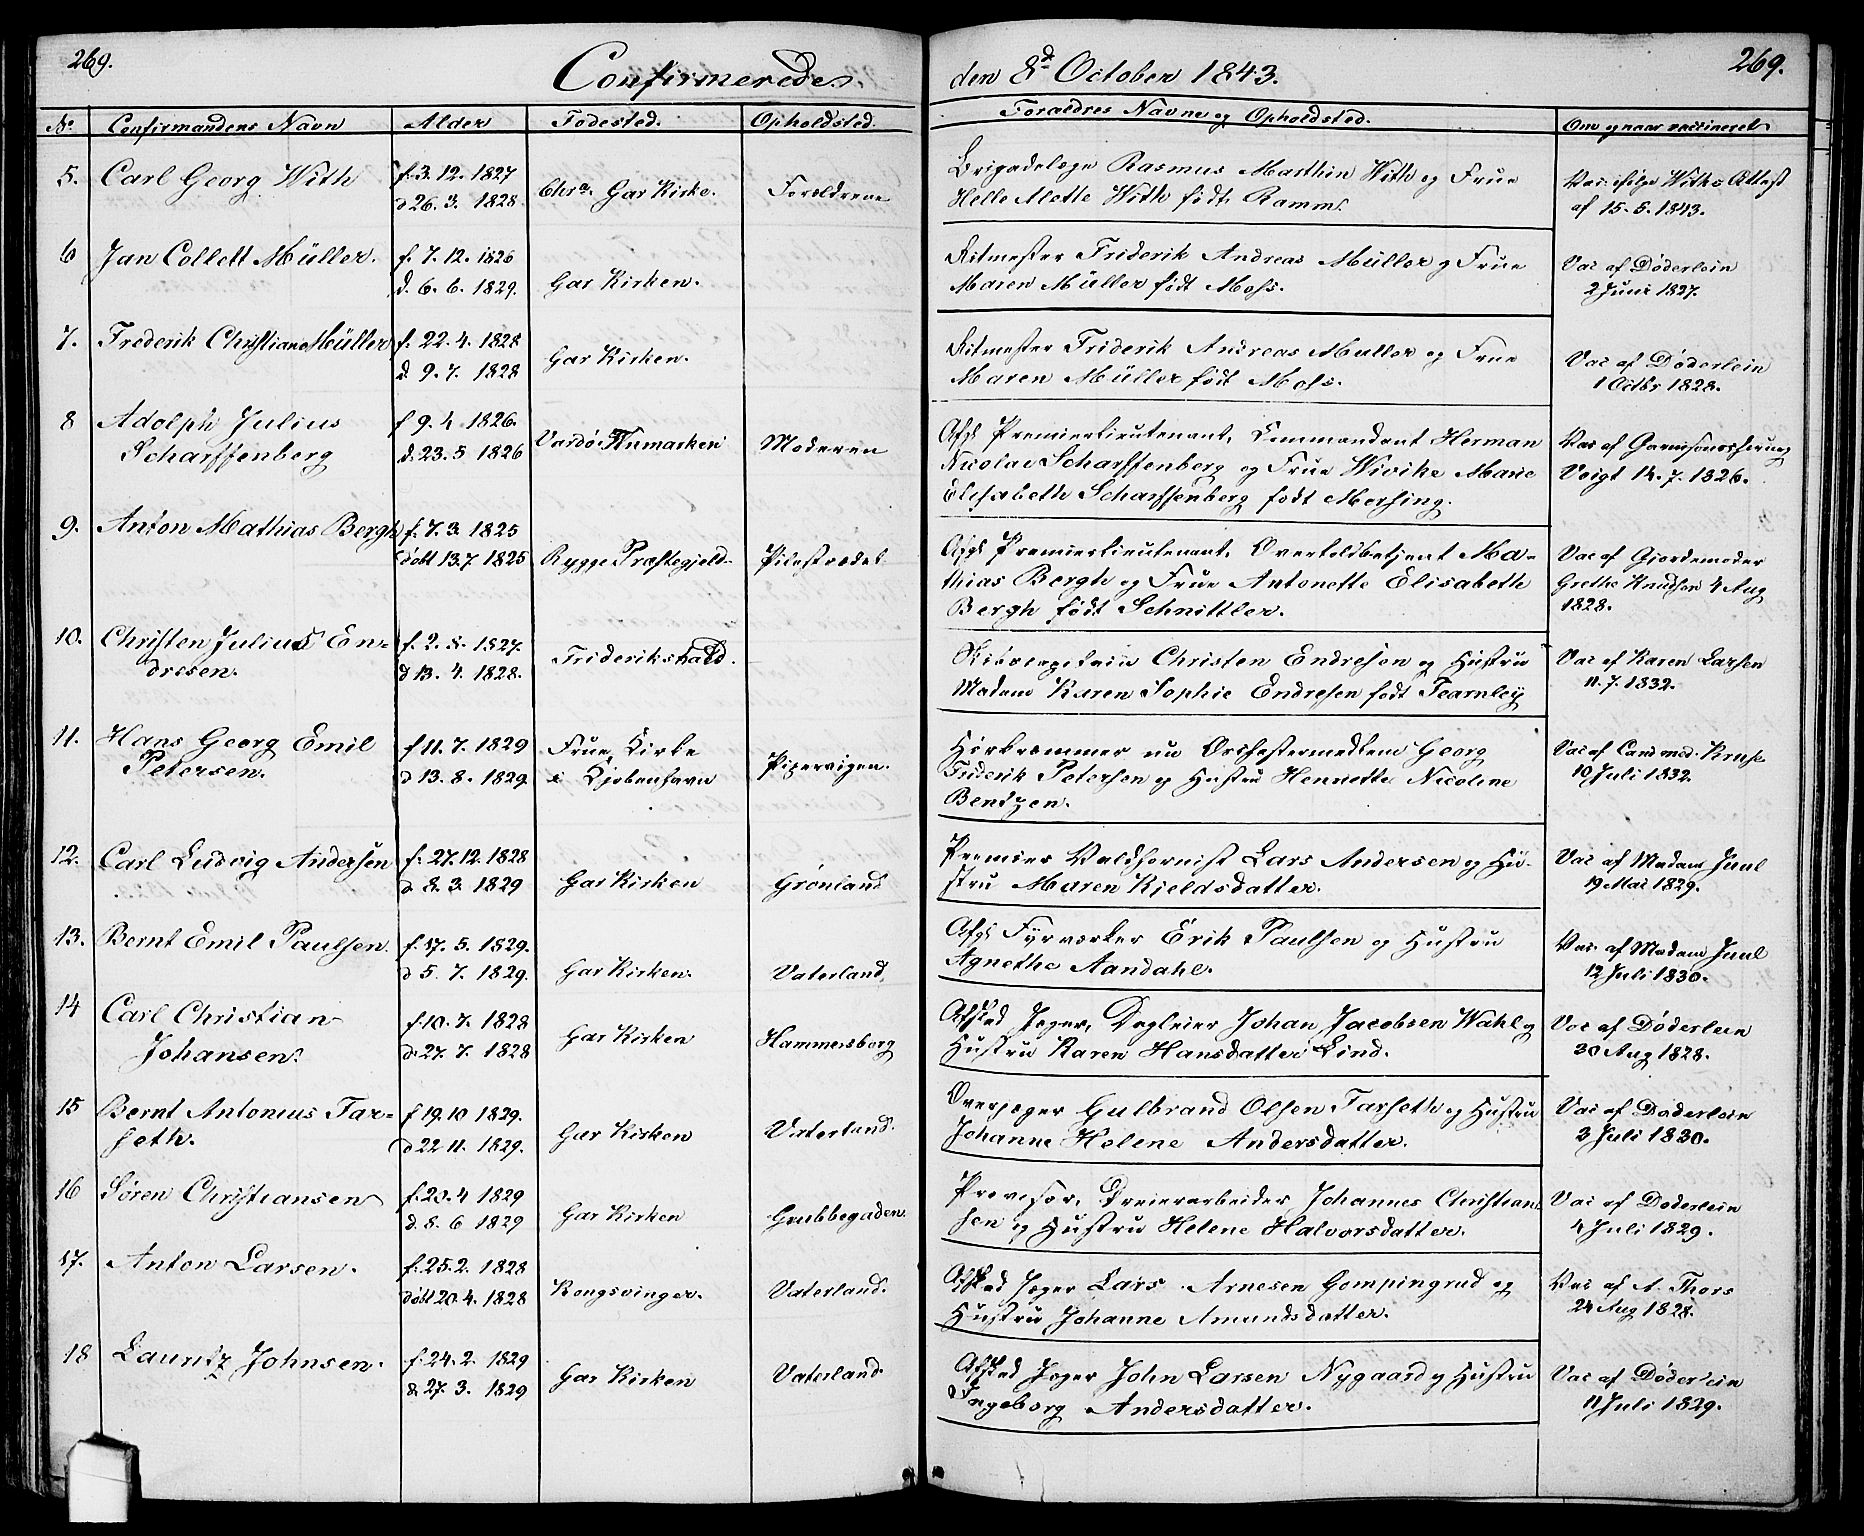 269.
Confirmerede.
den 8d October 1843.
269.
No Confirmandens Navn Alder Fødested. Opholdsted. Foraldres Navne og Opholdsted. Om og naar vaccineret
5. Carl Georg With f. 3. 12. 1827 Chra. Gar Kirke. Forældrene Brigadelæge Rasmus Marthin With og Frue Vac. ifølge Withs Attest
d 26. 3. 1828. Helle Mette With født Ramm. af 15. 5. 1843.
6 Jan Collett Müller. f. 7. 12. 1826 Gar Kirken. Ritmester Friderik Andreas Müller og Frue Vac af Døderlein
d. 6. 6. 1829. Maren Müller født Moss. 2 Juni 1827.
7. Frederik Christian Müller f. 22. 4. 1828 Gar Kirken. Ritmester Friderik Andreas Müller og Frue Vac af Døderlein
d. 9. 7. 1828 Maren Müller født Moss. 1 Octbr 1828.
8 Adolph Julius f 9. 4 1826. Vardø i Finmarken Moderen Afgl Premierlieutenant, Commandant Herman Vac af
Scharffenberg d. 23. 5 1826 Nicolai Scharffenberg og Frue Wivike Marie Voigt 14. 7. 1826.
Elisabeth Scharffenberg født Mersing.
9. Anton Mathias Bergh f. 7. 3. 1825 Rygge Præstegjeld Pilestrædet Afgl Premierlieutenant, Overtoldbetjent Ma-
døbt 13.7 1825 thias Bergh og Frue Antonette Elisabeth Vac af Gjordemoder
Bergh født Schnittler. Grethe Knudsen 4 Aug
1828.
10. Christen Julius En- f. 2. 8. 1827. Frideriks hald. Christen Endresen og Hustru Vac af Karen Larsen
dresen. d 13. 4. 1828. Madam Karen Sophie Endresen født Fearnley 11. 7. 1832.
11. Hans Georg Emil f 11. 7. 1829 Frue Kirke Pipervigen. nu Orchestermedlem Georg Vac af Cand med. Kruse
Petersen. d 13. 8. 1829. i Kjøbenhavn Friderik Petersen og Hustru Hennette Nicoline 10 Juli 1832.
Bentzen.
12. Carl Ludvig Andersen f. 27. 12. 1828 Gar Kirken Grønland Premier Valdhornist Lars Andersen og Hu- Vac af Madam Juul
d 8. 3. 1829 stru Maren Kjeldsdatter. 19 Mai 1829.
13. Bernt Emil Paulsen. f. 17. 5. 1829. Gar Kirken. Vaterland. Afgl Fyrværker Erik Paulsen og Hustru Vac. af Madam Juul
d 5. 7. 1829. Agnethe Aandahl. 12 Juli 1830.
14 Carl Christian f. 10. 7. 1828 Gar Kirken Hammersborg Afsked Jæger, Dagleier Johan Jacobsen Wahl og Vac af Døderlein
Johansen. d. 27. 7. 1828 Hustru Karen Hansdatter Lind. 30 Aug 1828.
15 Bernt Antonius Tar- f 19. 10 1829. Gar Kirken Vaterland. Overjæger Gulbrand Olsen Tarseth og Hustru Vac af Døderlein
seth. d 22 11. 1829. Johanne Helene Andersdatter. 3 Juli 1830.
16 Søren Christiansen f. 20. 4 1829 Gar Kirken Grubbegaden. Provisor, Dreierarbeider Johannes Christian Vac af Døderlein
d. 8. 6 1829 sen og Hustru Helene Halvorsdatter. 4 Juli 1829.
17. Anton Larsen. f. 25. 2. 1828 Kongsvinger. Vaterland. Afsked Jæger Lars Arnesen Gompingrud og Vac af A. Thors
døbt 20. 4. 1828 Hustru Johanne Amundsdatter. 24 Aug 1828.
18 Launtz Johnsen. f. 24. 2. 1829 Gar Kirken Vaterland Afsked Jæger John Larsen Nygaard og Hustru Vac af Døderlein
d. 27. 3. 1829 Ingeborg Andersdatter. 11 Juli 1829.